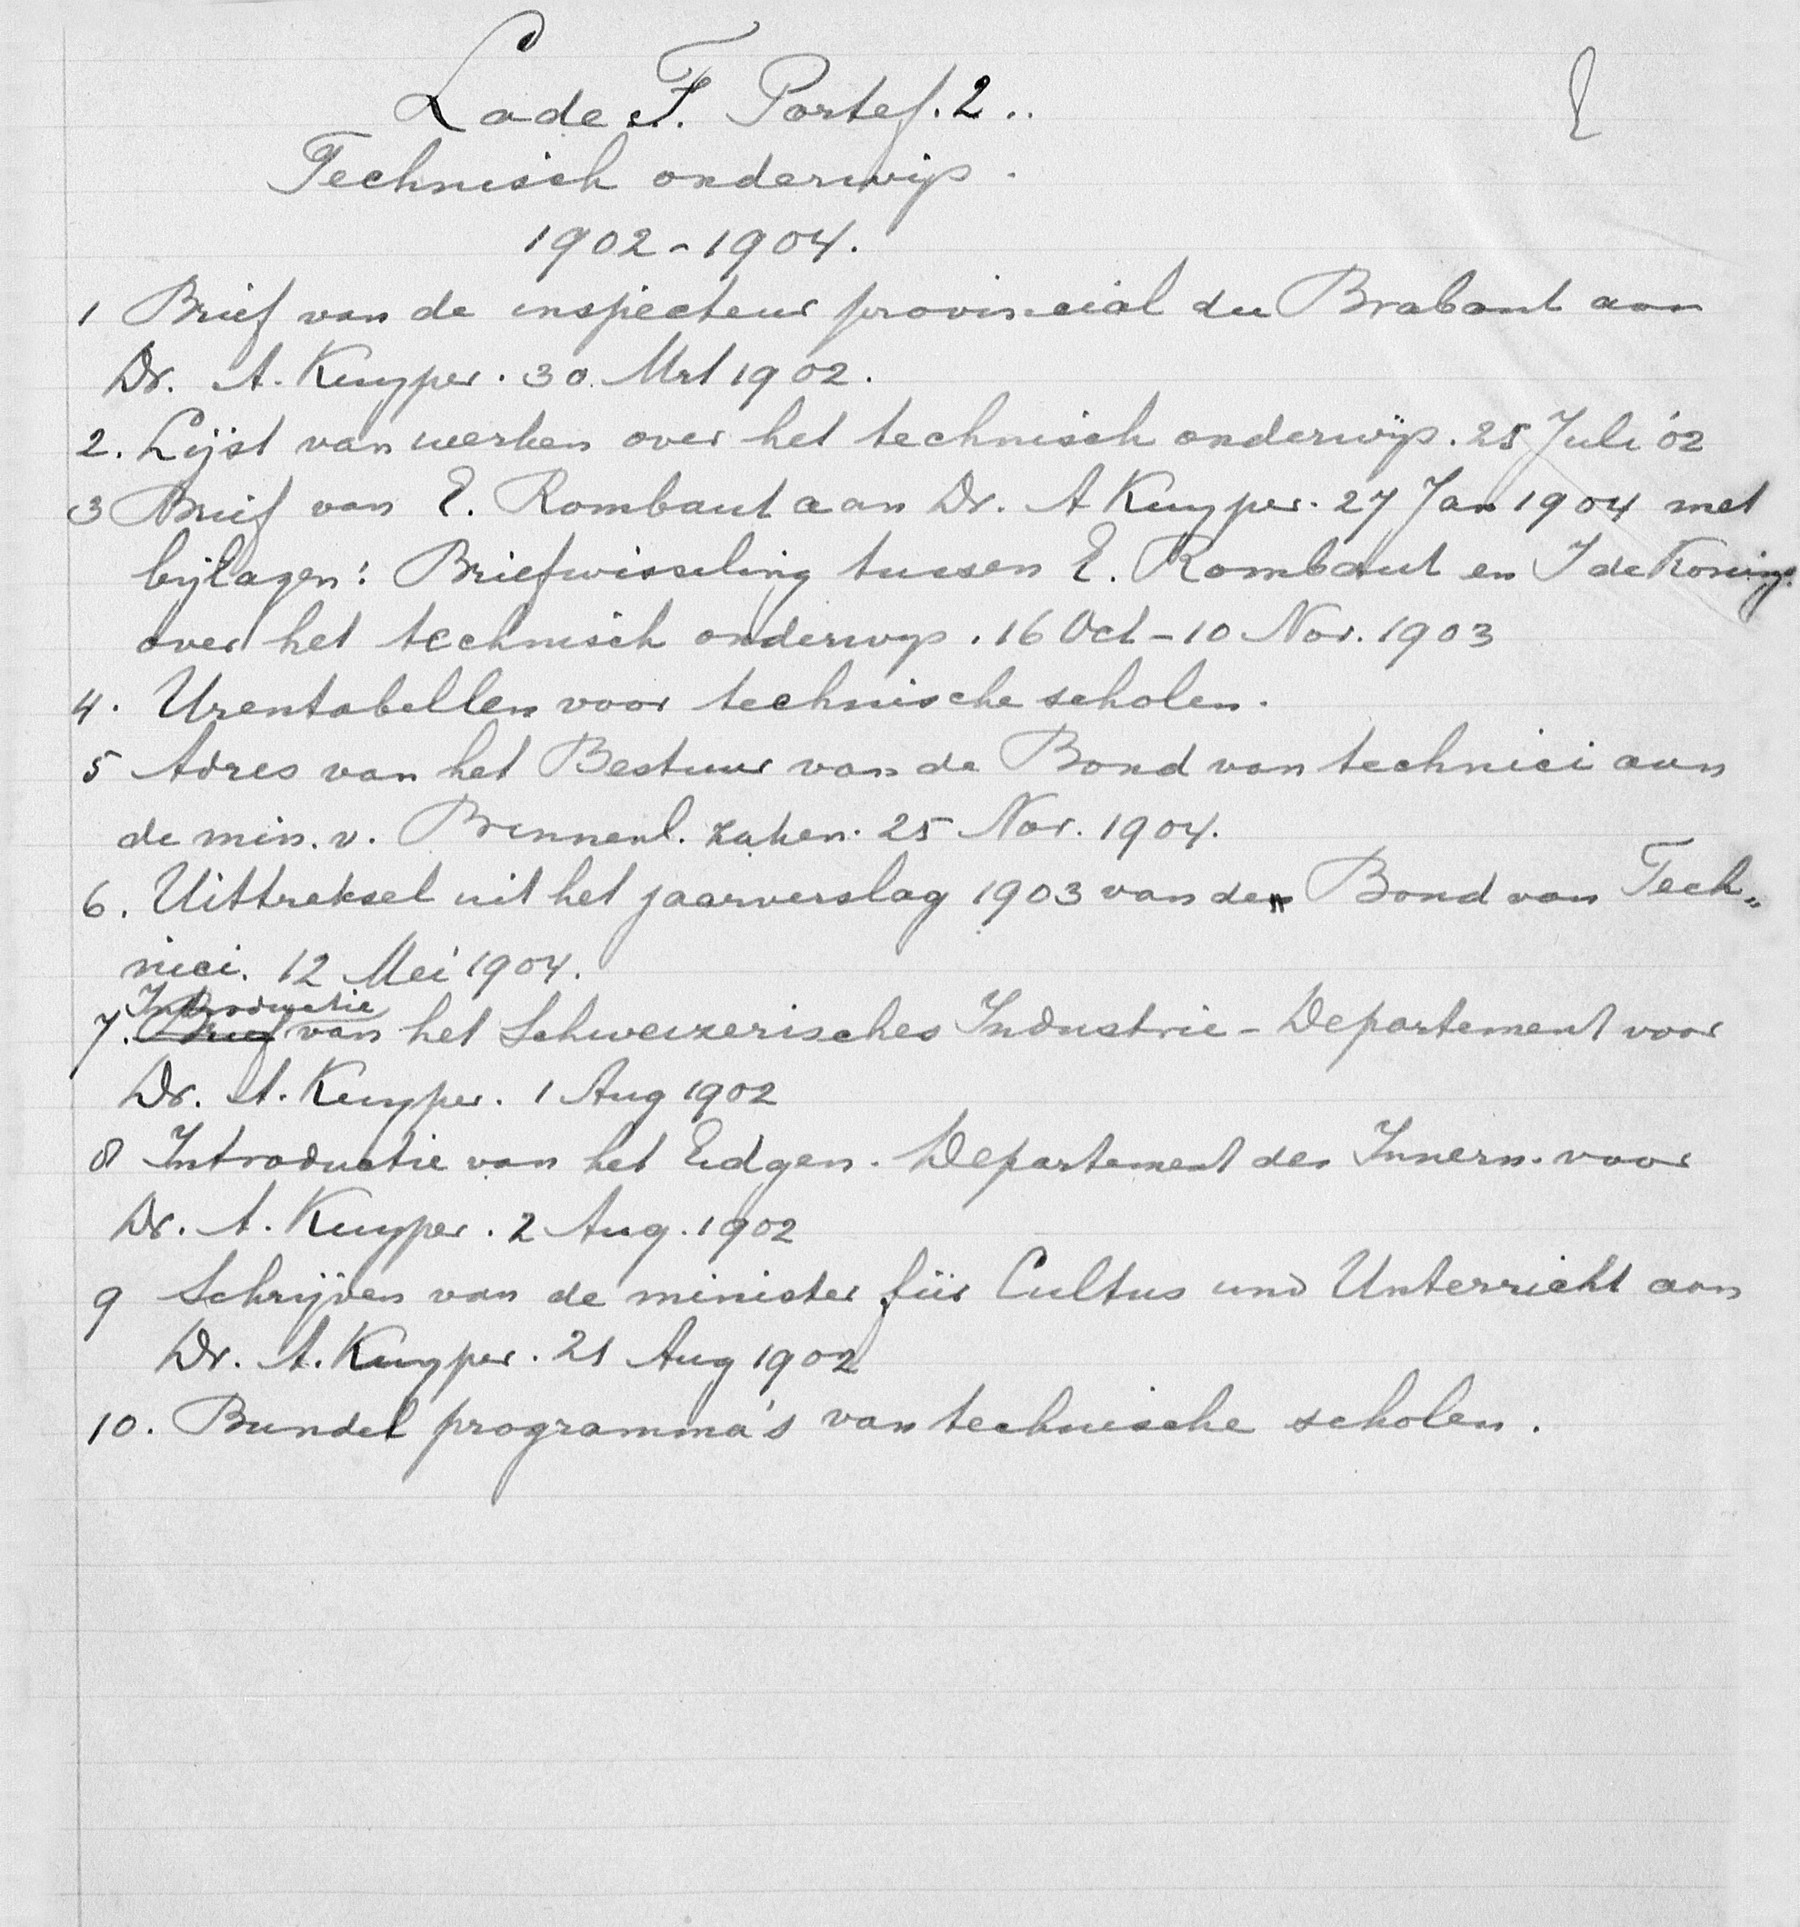 Lade F. Portef. 2..
Technisch onderwijs.
1902-1904.
1 Brief van de inspecteur provincial du Brabant aan
Dr. A. Kuyper. 30 Mrt 1902.
2. Lijst van werken over het technisch onderwijs. 25 Juli '02
3 Brief van E. Rombaut aan Dr. A Kuyper. 27 Jan 1904 met
bijlagen: Briefwisseling tussen E. Rombaut en J de Koning.
over het technisch onderwijs. 16 Oct - 10 Nov. 1903
4. Urentabellen voor technische scholen.
5 Adres van het Bestuur van de Bond van technici aan
de min. v. Binnenl. zaken. 25 Nov. 1904.
6. Uittreksel uit het jaarverslag 1903 van den Bond van Tech=
nici. 12 Mei 1904.
Introductie
7. Brief van het Schweizerisches Industrie-Departement voor
Dr. A. Kuyper. 1 Aug 1902
8 Introductie van het Eidgen. Departement des Innern. voor
Dr. A. Kuyper. 2 Aug. 1902
9 Schrijven van de minister für Cultus und Unterricht aan
Dr. A. Kuyper. 21 Aug 1902
10. Bundel programma's van technische scholen.